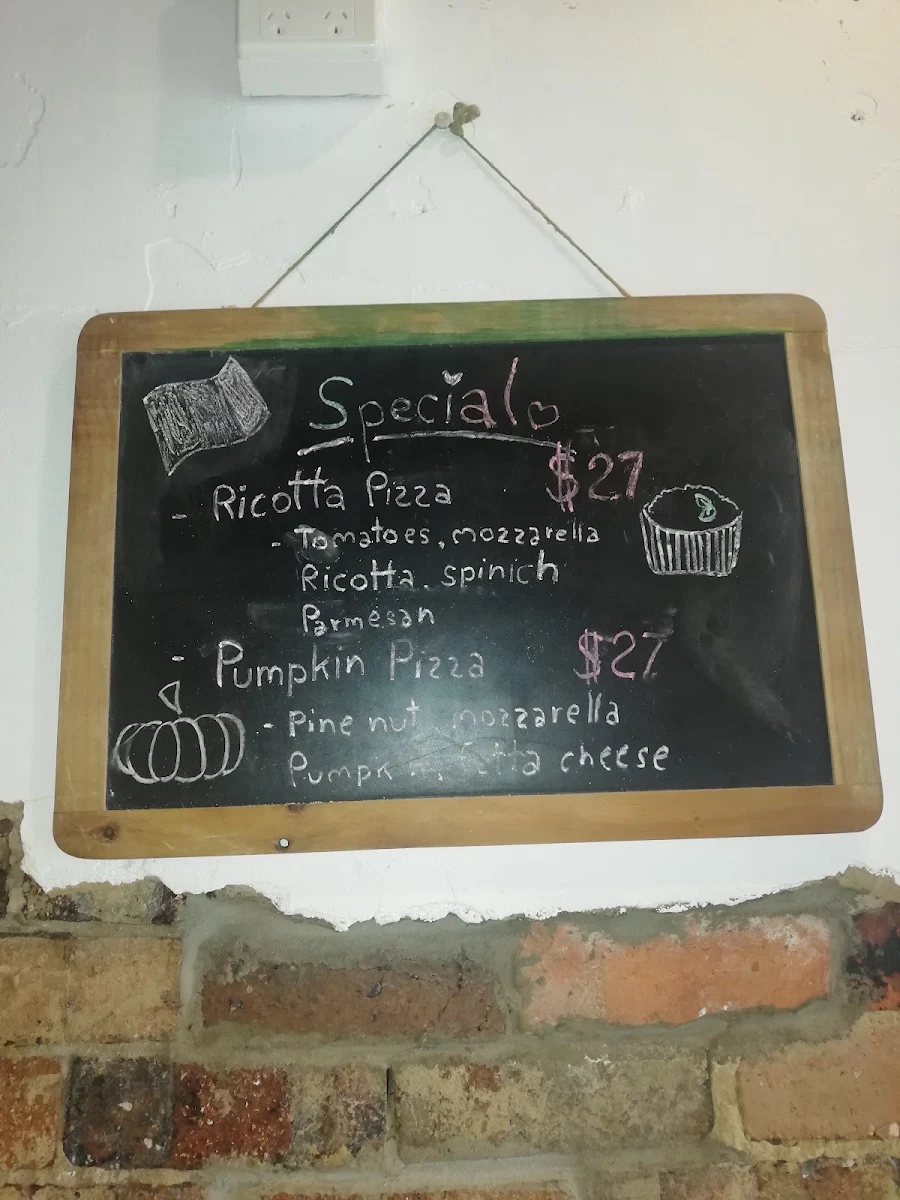 Special
- Ricotta Pizza $27
- Tomatoes, mozzarella
Ricotta. spinich
Parmesan
- Pumpkin Pizza $27
- Pine nut, mozzarella
Pumpkin, fetta cheese